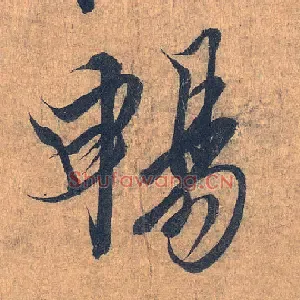 暢
ShufaWang.CN